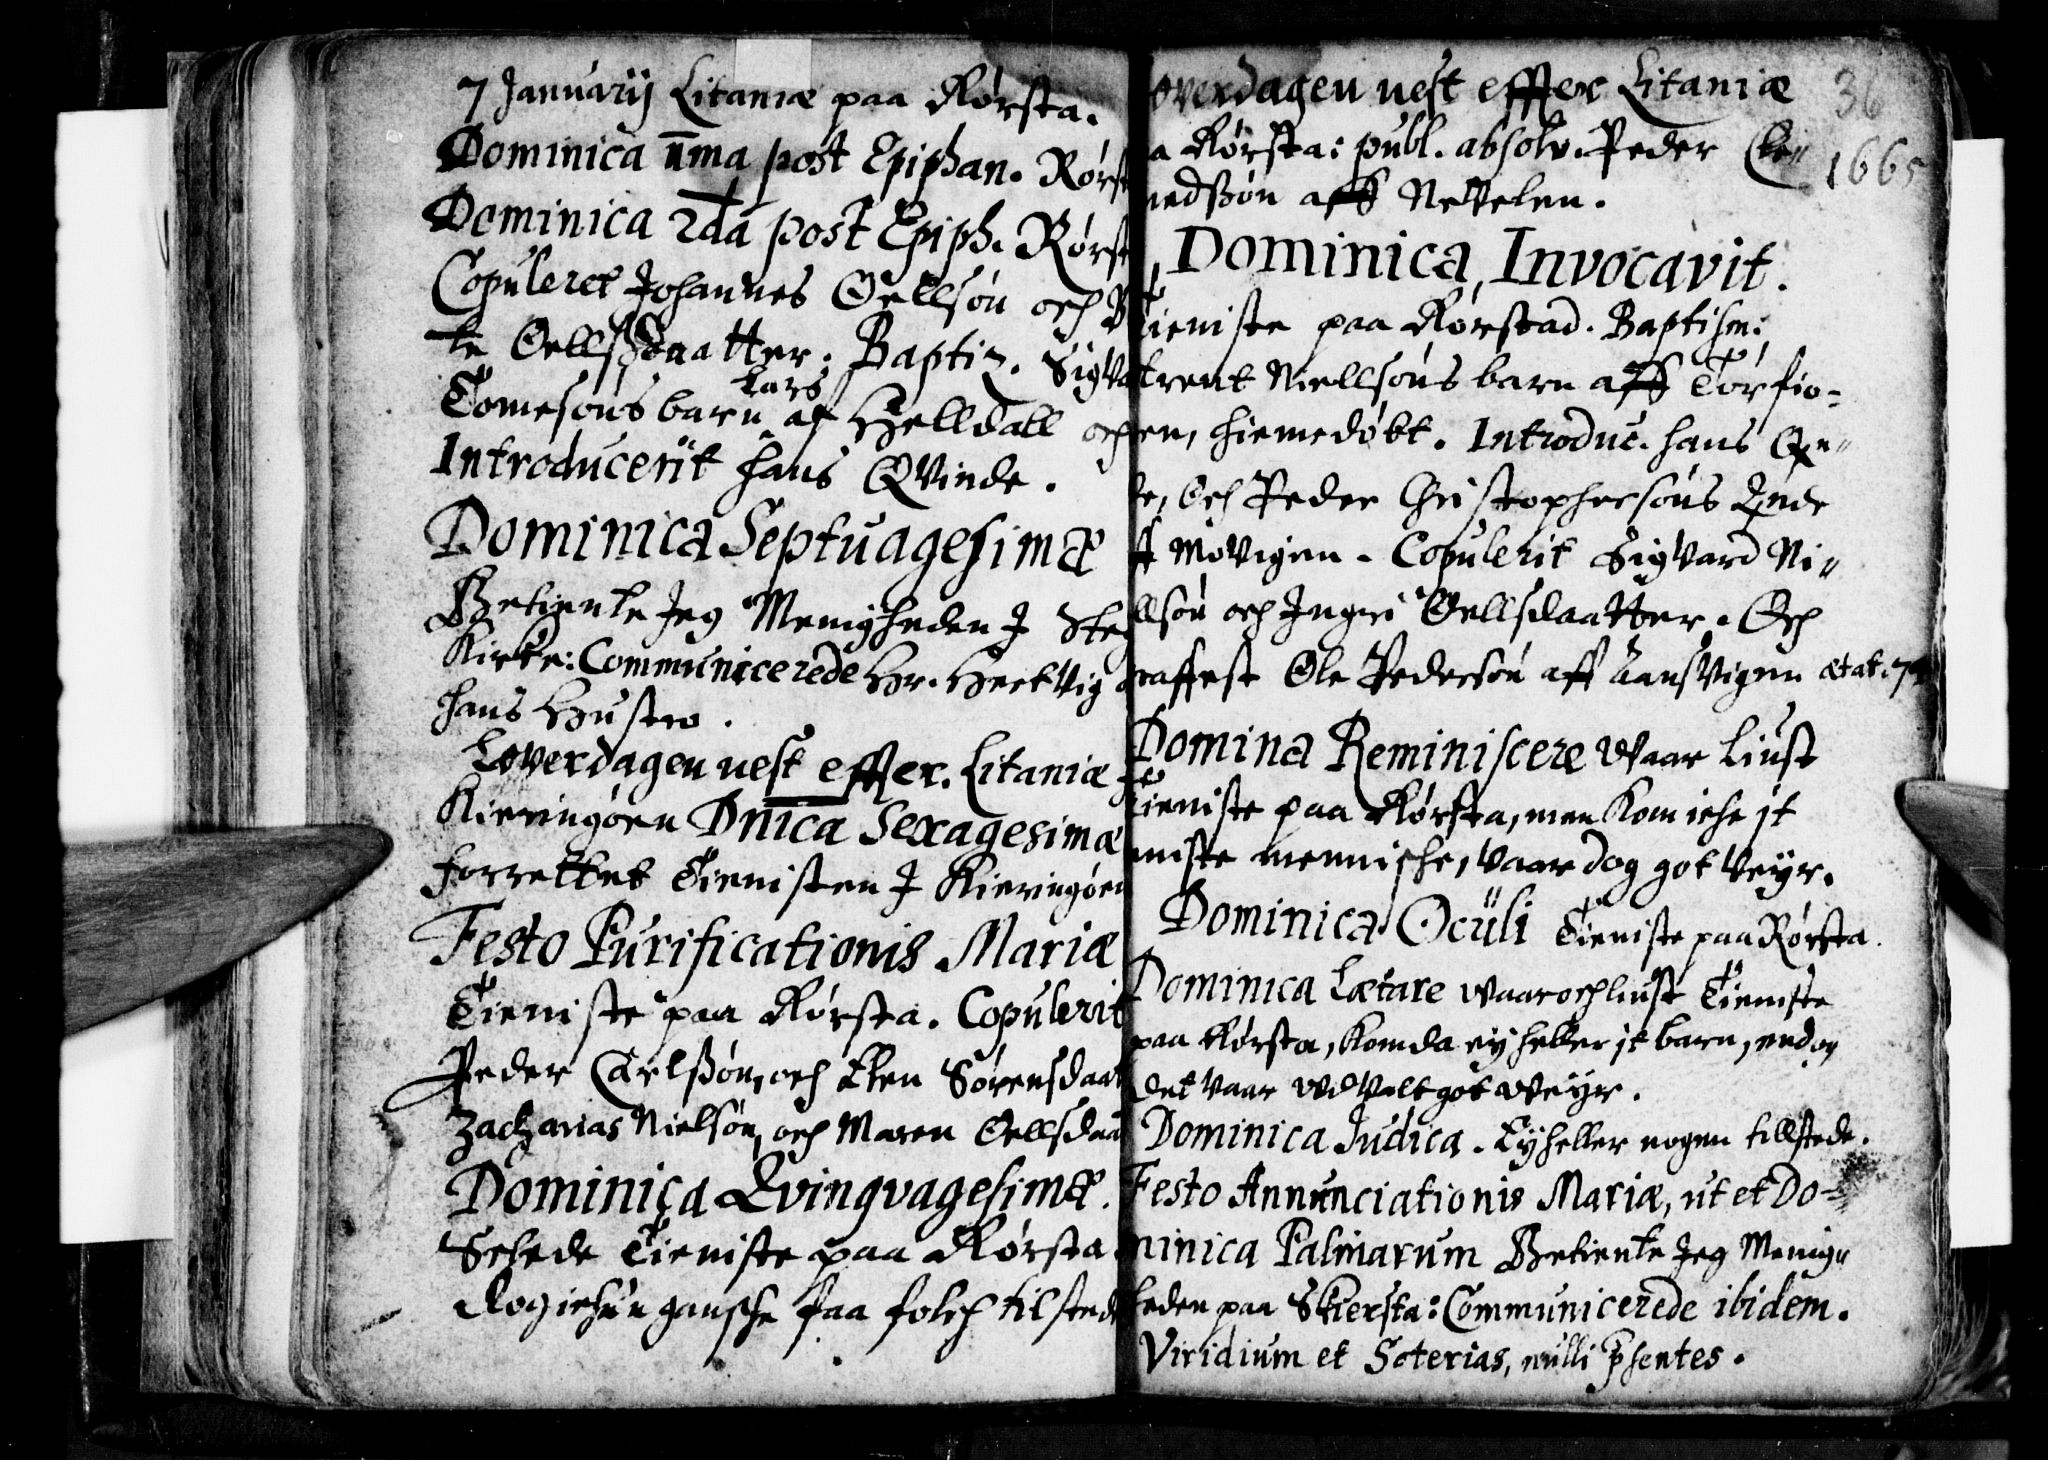 7 Januarij Litaniæ paa Rørsta.
Dominica 1ma post Epiphan. Rørst
Dominica 2da post Epiph. Rørst
Copuleret Johannes Oellsøn och
te Oellsdaatter. Baptiz. Sigva
Lars
Tomesøns barn af Helldall och
Introducerit hans Qvinde.
Dominica Septuagesimæ
Betiente Jeg Menigheden J Steg
Kirke: Communicerede Hr. Hertvig
hans Hustro.
Løverdagen nest effter. Litaniæ
Kieringøen Dnica Sexagesimæ
forrettet Tienisten J Kieringøen
Festo Purificationis Mariæ
Tieniste paa Rørsta. Copulerit
Peder Carlssøn, och Sørensdaat
Zacharias Nielsøn, och Maren Oellsdaa
Dominica Qvinqvagesimæ.
Schede Tieniste paa Rørsta
Dog ichun gansche faa folch tilstede
36
1665
øverdagen nest effter Litaniæ
a Rørsta: publ. absolv. Peder
nedssøn aff Nevelen.
Dominica, Invocavit.
Tieniste paa Rørstad. Baptism:
trent Niellsøns barn aff Torfio-
en, hiemedøbt. Introduc. hans Qu-
de, Och Peder Christophersøns Qnde
ff Movigen. Copulerit Sigvard Ni-
llsøn och Ingri Oellsdaatter. Och
raffest Ole Pedersøn aff Aansvigen ætat. 7
Domina Reminiscere waar liust
Tieniste paa Rørsta, men Kom iche it
eniste mennische, vaar dog got veyr.
Dominica Oculi Tieniste paa Rørsta.
Dominica Lætare waar och liust Tieniste
paa Rørsta, Kom da ey heller it barn, endog
det vaar udvalt got weyr.
Dominica Judica. Ey heller nogen tillstede.
Festo Annunciationis Mariæ, ut et Do-
minica Palmarum Betiente Jeg Menig-
heden paa Skiersta: Communicerede ibidem.
Viridium et Soterias, nulli psentes.